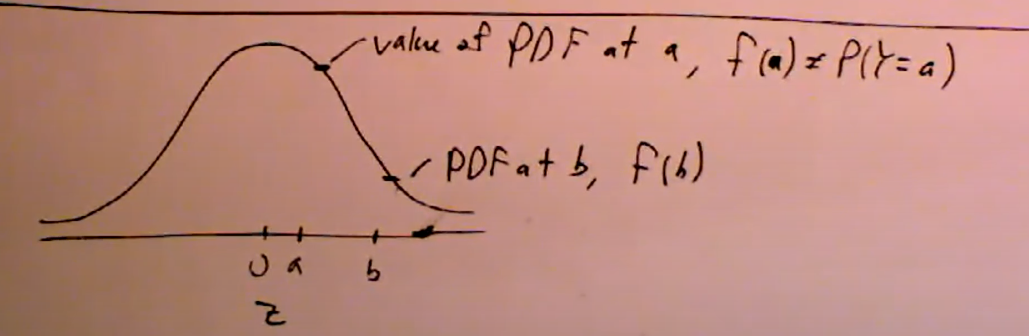 value of PDF at a, f(a) ≠ P(Y=a)
PDF at b, f(b)
0 a b
z